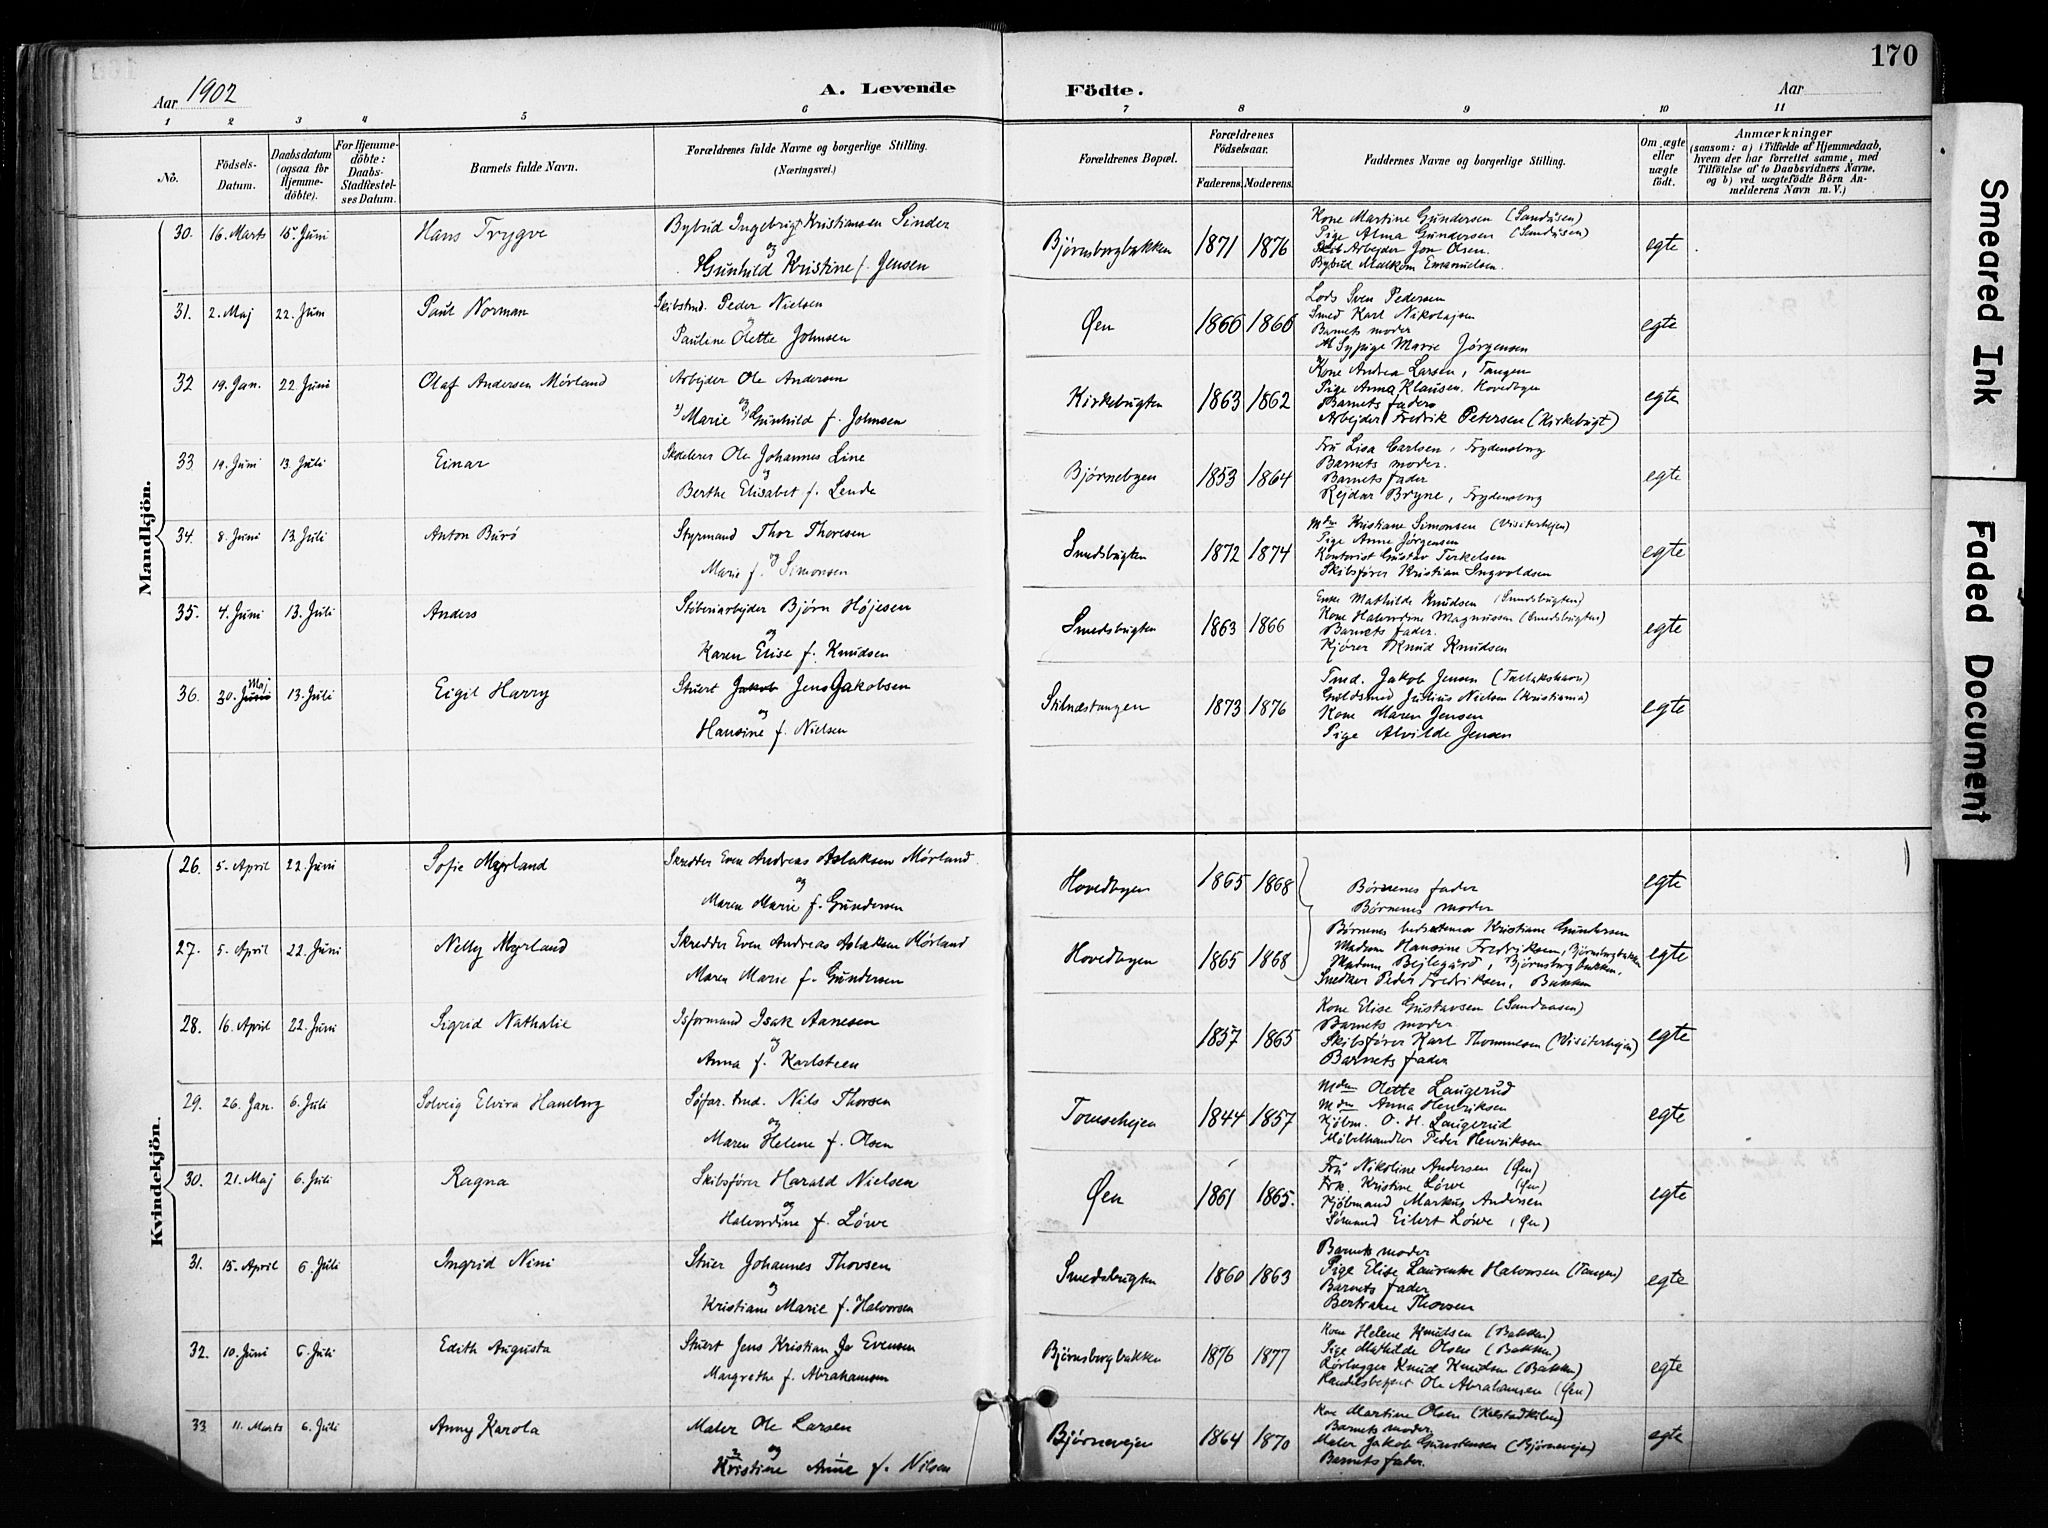 170
Aar 1902
A. Levende Födte.
Aar
1 2 3 4 5 6 7 8 9 10 11
No.
Födsels-Datum.
Daabsdatum (ogsaa for Hjemme-döbte).
For Hjemme-döbte: Daabs-Stadfæstel-ses Datum.
Barnets fulde Navn.
Forældrenes fulde Navne og borgerlige Stilling.
(Næringsvei.)
Forældrenes Bopæl.
Forældrenes Födselsaar.
Faderens. Moderens.
Faddernes Navne og borgerlige Stilling.
Om ægte eller uægte födt.
Anmærkninger
(saasom: a) i Tilfælde af Hjemmedaab, hvem der har forrettet samme, med Tilföielse af to Daabsvidners Navne, og b) ved uægtefödte Börn An-melderens Navn m. V.)
Mandkjön.
30. 16. Marts 15. Juni Hans Trygve Bybud Ingebrigt Kristiansen Sinder
og
Gunhild Kristine f. Jensen
Bjørnsborgbakken 1871 1876
Kone Martine Gundersen (Sandåsen)
Pige Alma Gundersen (Sandåsen)
Arbejder Jon Olsen.
Bybud Malkom Emanuelsen.
egte
31. 2. Maj 22. Juni Paul Norman Skibstmd. Peder Nielsen
og
Pauline Olette Johnsen
Øen 1866 1866
Lods Sven Pedersen
Smed Karl Nikolajsen
Barnets moder
Sypige Marie Jørgensen
egte
32 19. Jan. 22 Juni Olaf Andersen Mørland Arbejder Ole Andersen
og
Marie Gunhild f. Johnsen
Kirkebugten 1863 1862
Kone Andrea Larsen, Tangen
Pige Anna Klausen. Hovedbyen
Barnets fader
Arbejder Fredrik Petersen (Kirkebugt)
egte
33 19. Juni 13. Juli Einar Ole Johannes Line
og
Berthe Elisabet f. Lende
Bjørnebyen 1853 1864
Fru Lisa Carlsen, Frydensborg
Barnets moder.
Barnets fader
Rejdar Bryne, Frydensborg
egte
34. 8. Juni 13. Juli Anton Buró Styrmand Thor Thoresen
og
Marie f. Simonsen
Smedsbugten 1872 1874
Mdm Kristiane Simonsen (Visiterhejen)
Pige Anne Jørgensen
Kontorist Gustav Terkelsen
Skibsfører Kristian Ingvoldsen
egte
35. 4. Juni 13. Juli Anders Støberiarbejder Bjørn Højesen
og
Karen Elise f. Knudsen
Smedsbugten 1863 1866
Enke Mathilde Knudsen (Smedsbugten)
Kone Halvordine Magnussen (Smedsbugten)
Barnets fader.
Kjører Knud Knudsen
egte
36. 30. Juni Maj 13. Juli Eigil Harry Stuert Jakob Jens Jakobsen
og
Hansine f. Nielsen
Stilnæstangen 1873 1876
Tmd. Jakob Jensen (Tallakshavn)
Guldsmed Julius Nielsen (Kristiania)
Kone Maren Jensen
Pige Alvilde Jensen
egte
Kvindekjön.
26. 5. April 22. Juni Sofie Myrland Skredder Even Andreas Aslaksen Mørland
og
Maren Marie f. Gundersen
Hovedbyen 1865 1868
Børnenes fader
Børnenes moder
egte
27. 5. April 22. Juni Nelly Myrland Skredder Even Andreas Aslaksen Mørland
Maren Marie f. Gundersen
Hovedbyen 1865 1868
Børnenes bedstemor Kristiane Gundersen
Madam Hansine Fredriksen, Bjørnsborgbakken
Madam Bejlegård, Bjørnsborgbakken,
Peder Fredriksen, Bakken
egte
28. 16. April 22. Juni Sigrid Nathalie Isformand Isak Aanesen
og
Anna f. Karlsteen
1857 1865
Kone Elise Gustavsen (Sandaasen)
Barnets moder
Skibsfører Karl Thommesen (Visiterhejen)
Barnets fader
egte
29. 26. Jan. 6. Juli Solveig Elvira Haneborg Søfar. tmd. Nils Thorsen
og
Maren Helene f. Olsen
Toreshejen 1844 1857
Mdm Olette Laugerud
Mdm Anna Henriksen
Kjøbm. O. H. Laugerud
Møbelhandler Peder Henriksen
egte
30. 21. Maj 6. Juli Ragna Skibsfører Harald Nielsen
og
Halvordine f. Löwe
Øen 1861 1865.
Fru Nikoline Andersen (Øen)
Frk. Kristine Löwe (Øen)
Kjøbmand Markus Andersen
Sømand Eilert Löwe (Øen)
egte
31. 15. April 6. Juli Ingrid Nini Stuer Johannes Thorsen
og
Kristiane Marie f. Halvorsen
Smedsbugten 1860 1863
Barnets moder
Pige Elise Laurentse Halvorsen (Tangen)
Barnets fader
Bertram Thorsen
egte
32. 10. Juni 6. Juli Edith Augusta Stuert Jens Kristian Jo Evensen
Margrethe f. Abrahamsen
Bjørnsborgbakken 1876 1877
Kone Helene Knudsen (Bakken)
Pige Mathilde Olsen (Bakken)
Rørlegger Knud Knudsen (Bakken)
Handelsbetjent Ole Abrahamsen (Øen)
egte
33 11. Marts 6. Juli Anny Karola Maler Ole Larsen
og
Kristine Anne f. Nilsen
Bjørnevejen 1864 1870
Kone Martine Olsen (Kolstadkilen)
Barnets moder
Maler Jakob Gunstensen (Bjørnevejen)
Barnets fader.
egte
Smeared Ink
Faded Document